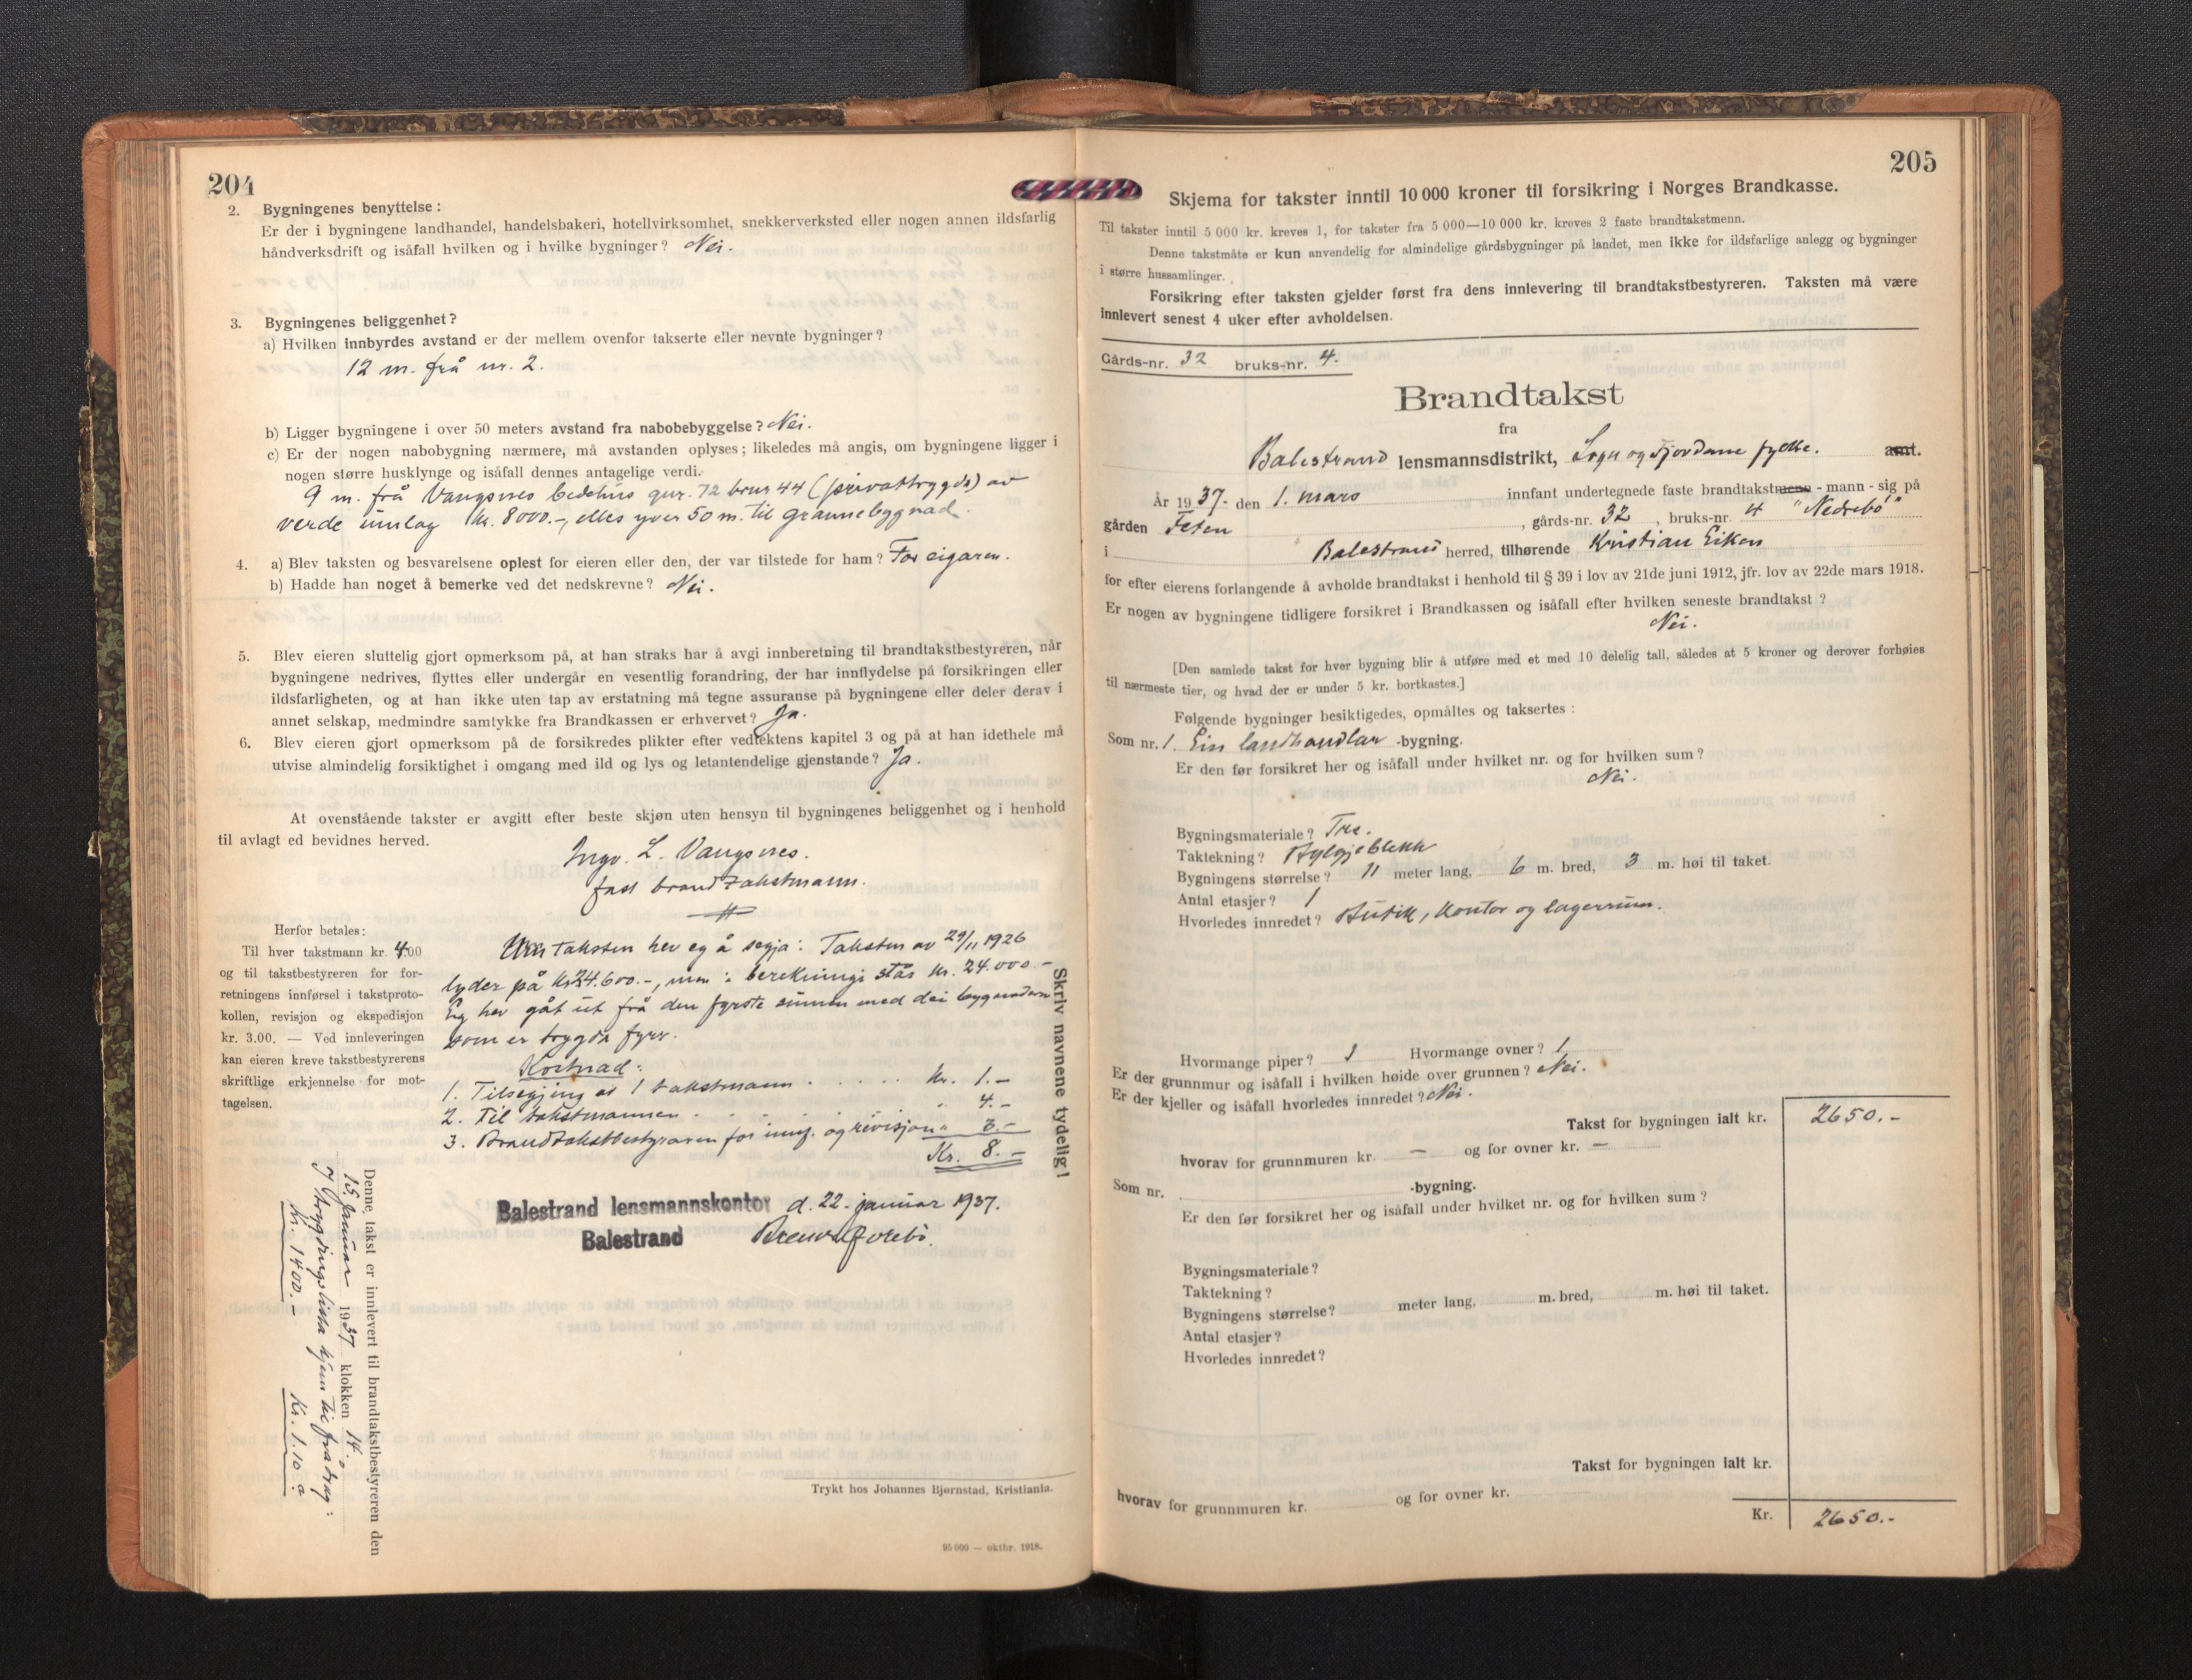 204
2. Bygningenes benyttelse:
Er der i bygningene landhandel, handelsbakeri, hotellvirksomhet, snekkerverksted eller nogen annen ildsfarlig
håndverksdrift og isåfall hvilken og i hvilke bygninger? Nei.
3. Bygningenes beliggenhet?
a) Hvilken innbyrdes avstand er der mellem ovenfor takserte eller nevnte bygninger?
12 m. frå nr. 2.
b) Ligger bygningene i over 50 meters avstand fra nabobebyggelse? Nei.
c) Er der nogen nabobygning nærmere, må avstanden oplyses; likeledes må angis, om bygningene ligger i
nogen større husklynge og isåfall dennes antagelige verdi.
9 m. frå Vangsnes bedehus gnr. 72 bruk 44 (privattrygda) av
verde umlag kr. 8000.-, elles yver 50 m. til grannebygnad.
4. a) Blev taksten og besvarelsene oplest for eieren eller den, der var tilstede for ham? For eigaren.
b) Hadde han noget å bemerke ved det nedskrevne? Nei.
5. Blev eieren sluttelig gjort opmerksom på, at han straks har å avgi innberetning til brandtakstbestyreren, når
bygningene nedrives, flyttes eller undergår en vesentlig forandring, der har innflydelse på forsikringen eller
ildsfarligheten, og at han ikke uten tap av erstatning må tegne assuranse på bygningene eller deler derav i
annet selskap, medmindre samtykke fra Brandkassen er erhvervet? Ja.
6. Blev eieren gjort opmerksom på de forsikredes plikter efter vedtektens kapitel 3 og på at han idethele må
utvise almindelig forsiktighet i omgang med ild og lys og letantendelige gjenstande? Ja.
At ovenstående takster er avgitt efter beste skjøn uten hensyn til bygningenes beliggenhet og i henhold
til avlagt ed bevidnes herved.
Ingv. L. Vangsnes.
fast brandtakstmann.
Herfor betales:
Til hver takstmann kr. 4.00
og til takstbestyreren for for-
retningens innførsel i takstproto-
kollen, revisjon og ekspedisjon
kr. 3.00. — Ved innleveringen
kan eieren kreve takstbestyrerens
skriftlige erkjennelse for mot-
tagelsen.
Um taksten hev eg å segja: Taksten av 29/11 1926
lyder på kr 24.600.-, men i berekningi står kr. 24.000.-
Eg hev gåt ut frå den fyrste summen med dei bygnadene
som er trygda fyrr.
Kostnad:
1. Tilsegjing av 1 takstmann . . . . . kr. 1.-
2. Til takstmannen . . " 4.-
3. Brandtakstbestyraren for innf. og revisjon " 3.-
Kr. 8.-
Skriv navnene tydelig!
Balestrand lensmannskontor d. 22. januar 1937.
Balestrand
Denne takst er innlevert til brandtakstbestyreren den
15. januar 1937 klokken 14.
I trygdingslista kjem til fradrag:
Kr. 1400.- Kr. 1.10
Trykt hos Johannes Bjørnstad, Kristiania.
95 000 — oktbr. 1918.
205
Skjema for takster inntil 10 000 kroner til forsikring i Norges Brandkasse.
Til takster inntil 5 000 kr. kreves 1, for takster fra 5 000—10 000 kr. kreves 2 faste brandtakstmenn.
Denne takstmåte er kun anvendelig for almindelige gårdsbygninger på landet, men ikke for ildsfarlige anlegg og bygninger
i større hussamlinger.
Forsikring efter taksten gjelder først fra dens innlevering til brandtakstbestyreren. Taksten må være
innlevert senest 4 uker efter avholdelsen.
Gårds-nr. 32 bruks-nr. 4.
Brandtakst
fra
Balestrand lensmannsdistrikt, Sogn og Fjordane fylke. amt.
År 1937. den 1. mars innfant undertegnede faste brandtakstmenn - mann - sig på
gården Feten, gårds-nr. 32, bruks-nr. 4 "Nedrebö"
i Balestrand herred, tilhørende Kristian Eiken
for efter eierens forlangende å avholde brandtakst i henhold til § 39 i lov av 21de juni 1912, jfr. lov av 22de mars 1918.
Er nogen av bygningene tidligere forsikret i Brandkassen og isåfall efter hvilken seneste brandtakst?
Nei.
[Den samlede takst for hver bygning blir å utføre med et med 10 delelig tall, således at 5 kroner og derover forhøies
til nærmeste tier, og hvad der er under 5 kr. bortkastes.]
Følgende bygninger besiktigedes, opmåltes og taksertes:
Som nr. 1. Ein landhandlar -bygning.
Er den før forsikret her og isåfall under hvilket nr. og for hvilken sum?
Nei.
Bygningsmateriale? Tre.
Taktekning? Bylgjeblekk
Bygningens størrelse? 11 meter lang, 6 m. bred, 3 m. høi til taket.
Antal etasjer? 1
Hvorledes innredet? Butik, kontor og lagerrum.
Hvormange piper? 1 Hvormange ovner? 1
Er der grunnmur og isåfall i hvilken høide over grunnen? Nei.
Er der kjeller og isåfall hvorledes innredet? Nei.
Takst for bygningen ialt kr. 2650.-
hvorav for grunnmuren kr. — og for ovner kr. —
Som nr. -bygning.
Er den før forsikret her og isåfall under hvilket nr. og for hvilken sum?
Bygningsmateriale?
Taktekning?
Bygningens størrelse? meter lang, m. bred, m. høi til taket.
Antal etasjer?
Hvorledes innredet?
Takst for bygningen ialt kr.
hvorav for grunnmuren kr. og for ovner kr.
Kr. 2650.-